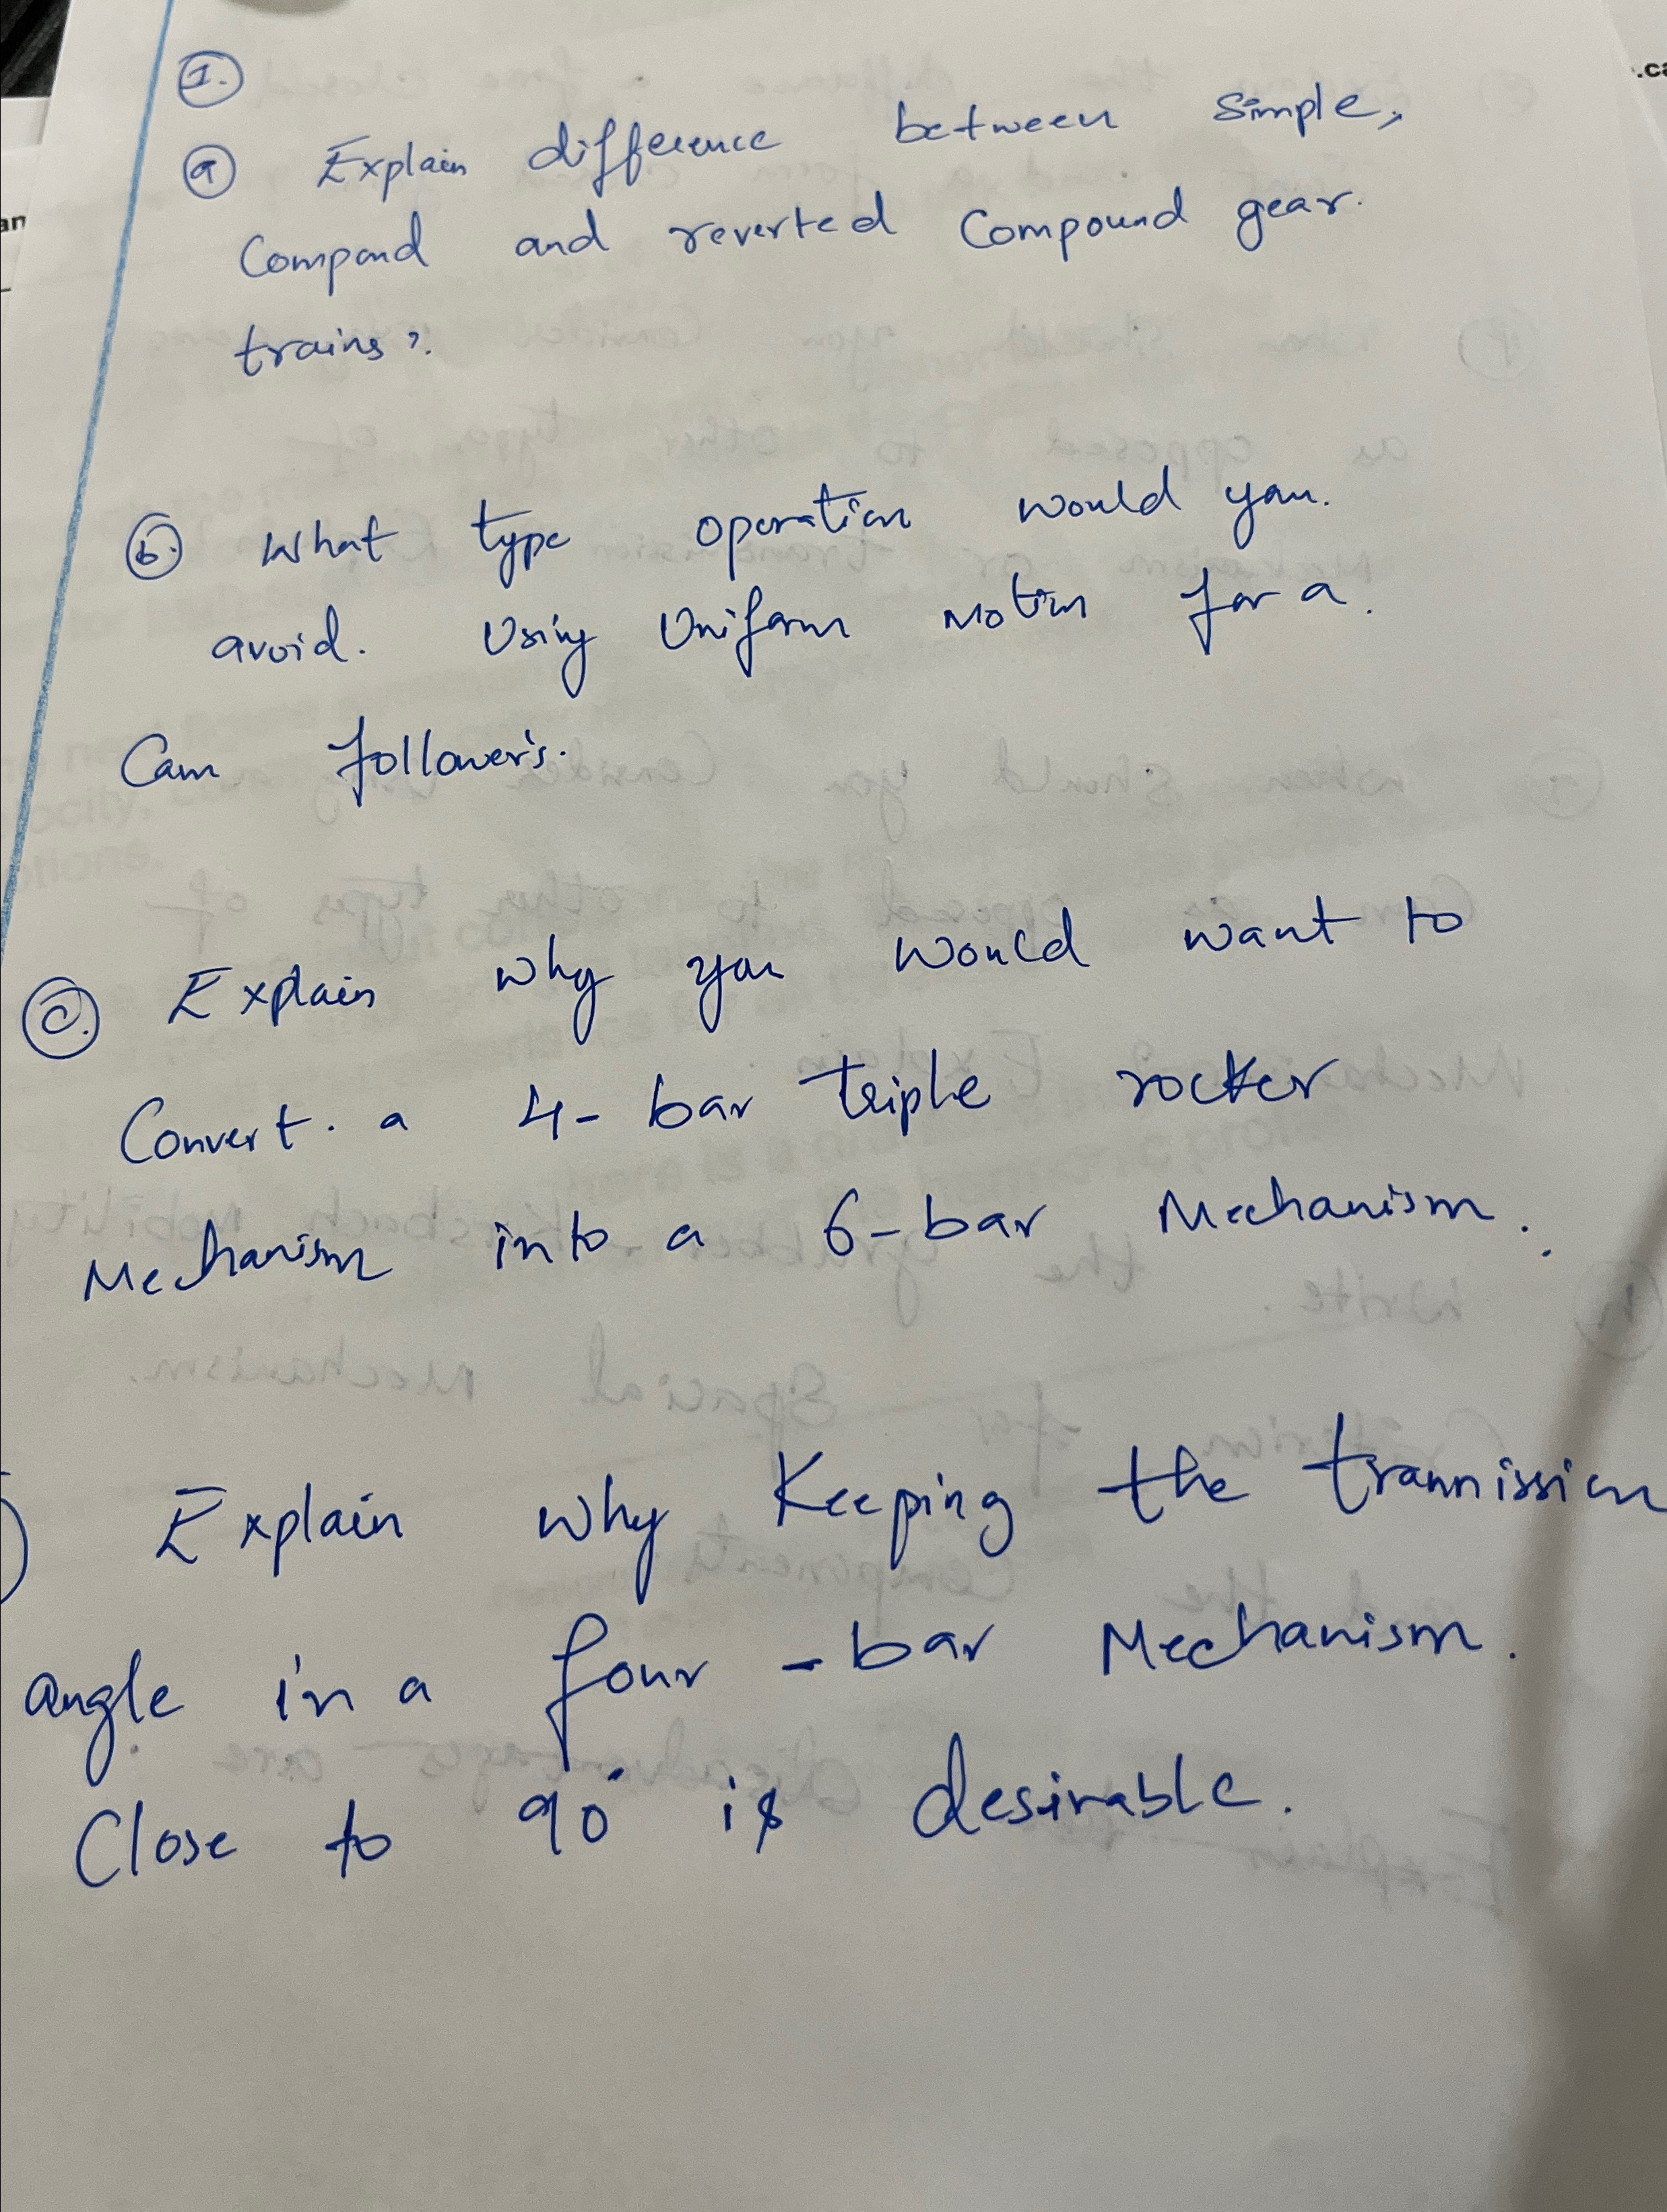 1.
a Explain difference between simple,
Compond and reverted Compound gear.
trains?.
b. What type operation would you.
avoid. Using Uniform Motion for a.
Cam follower's.
c. Explain why you would want to
Convert. a 4-bar triple rocker
Mechanism into a 6-bar Mechanism.
Explain why Keeping the trannission
angle in a four-bar Mechanism.
Close to 90° is desirable.